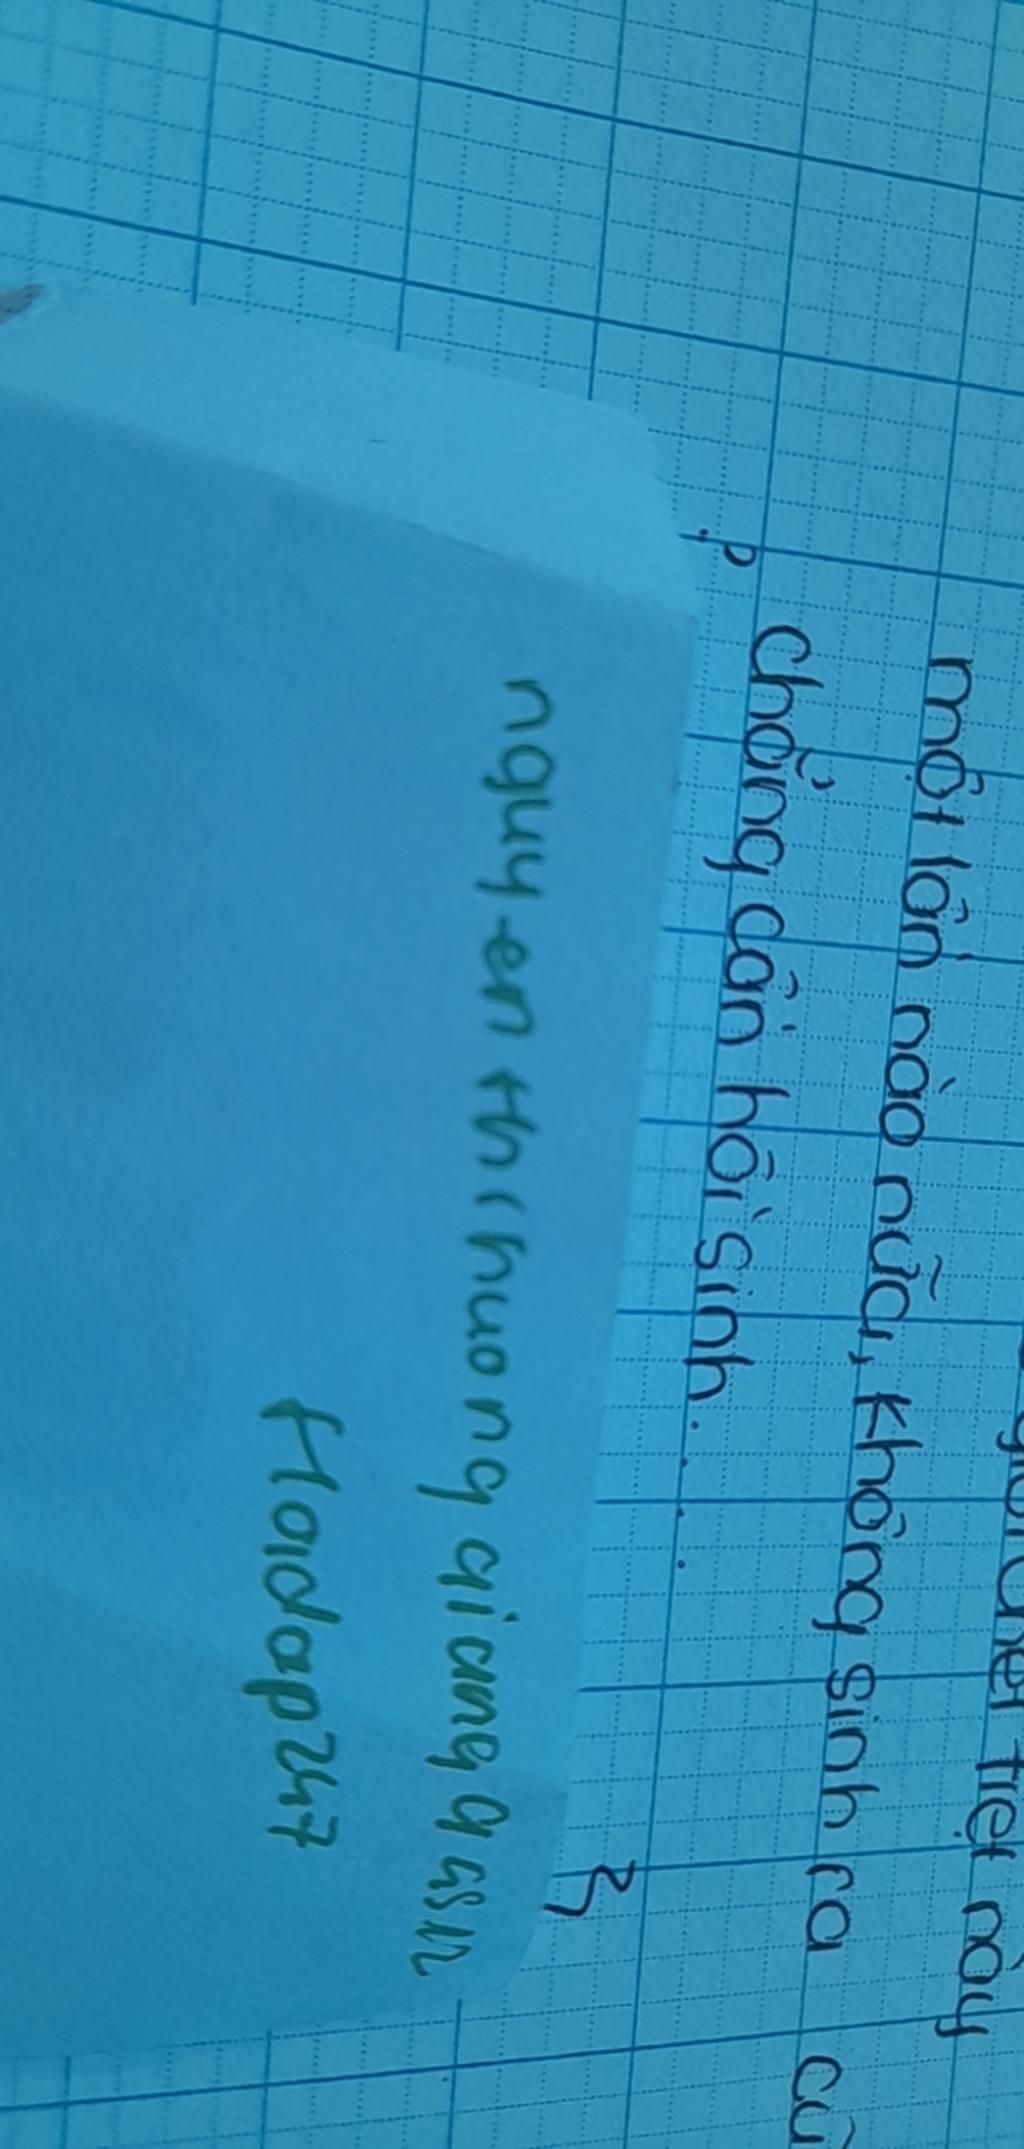 chết triệt này
một lần nào nữa, không sinh ra cũ
chẳng cần hồi sinh....
nguyen thi huong giang
Hoidap247